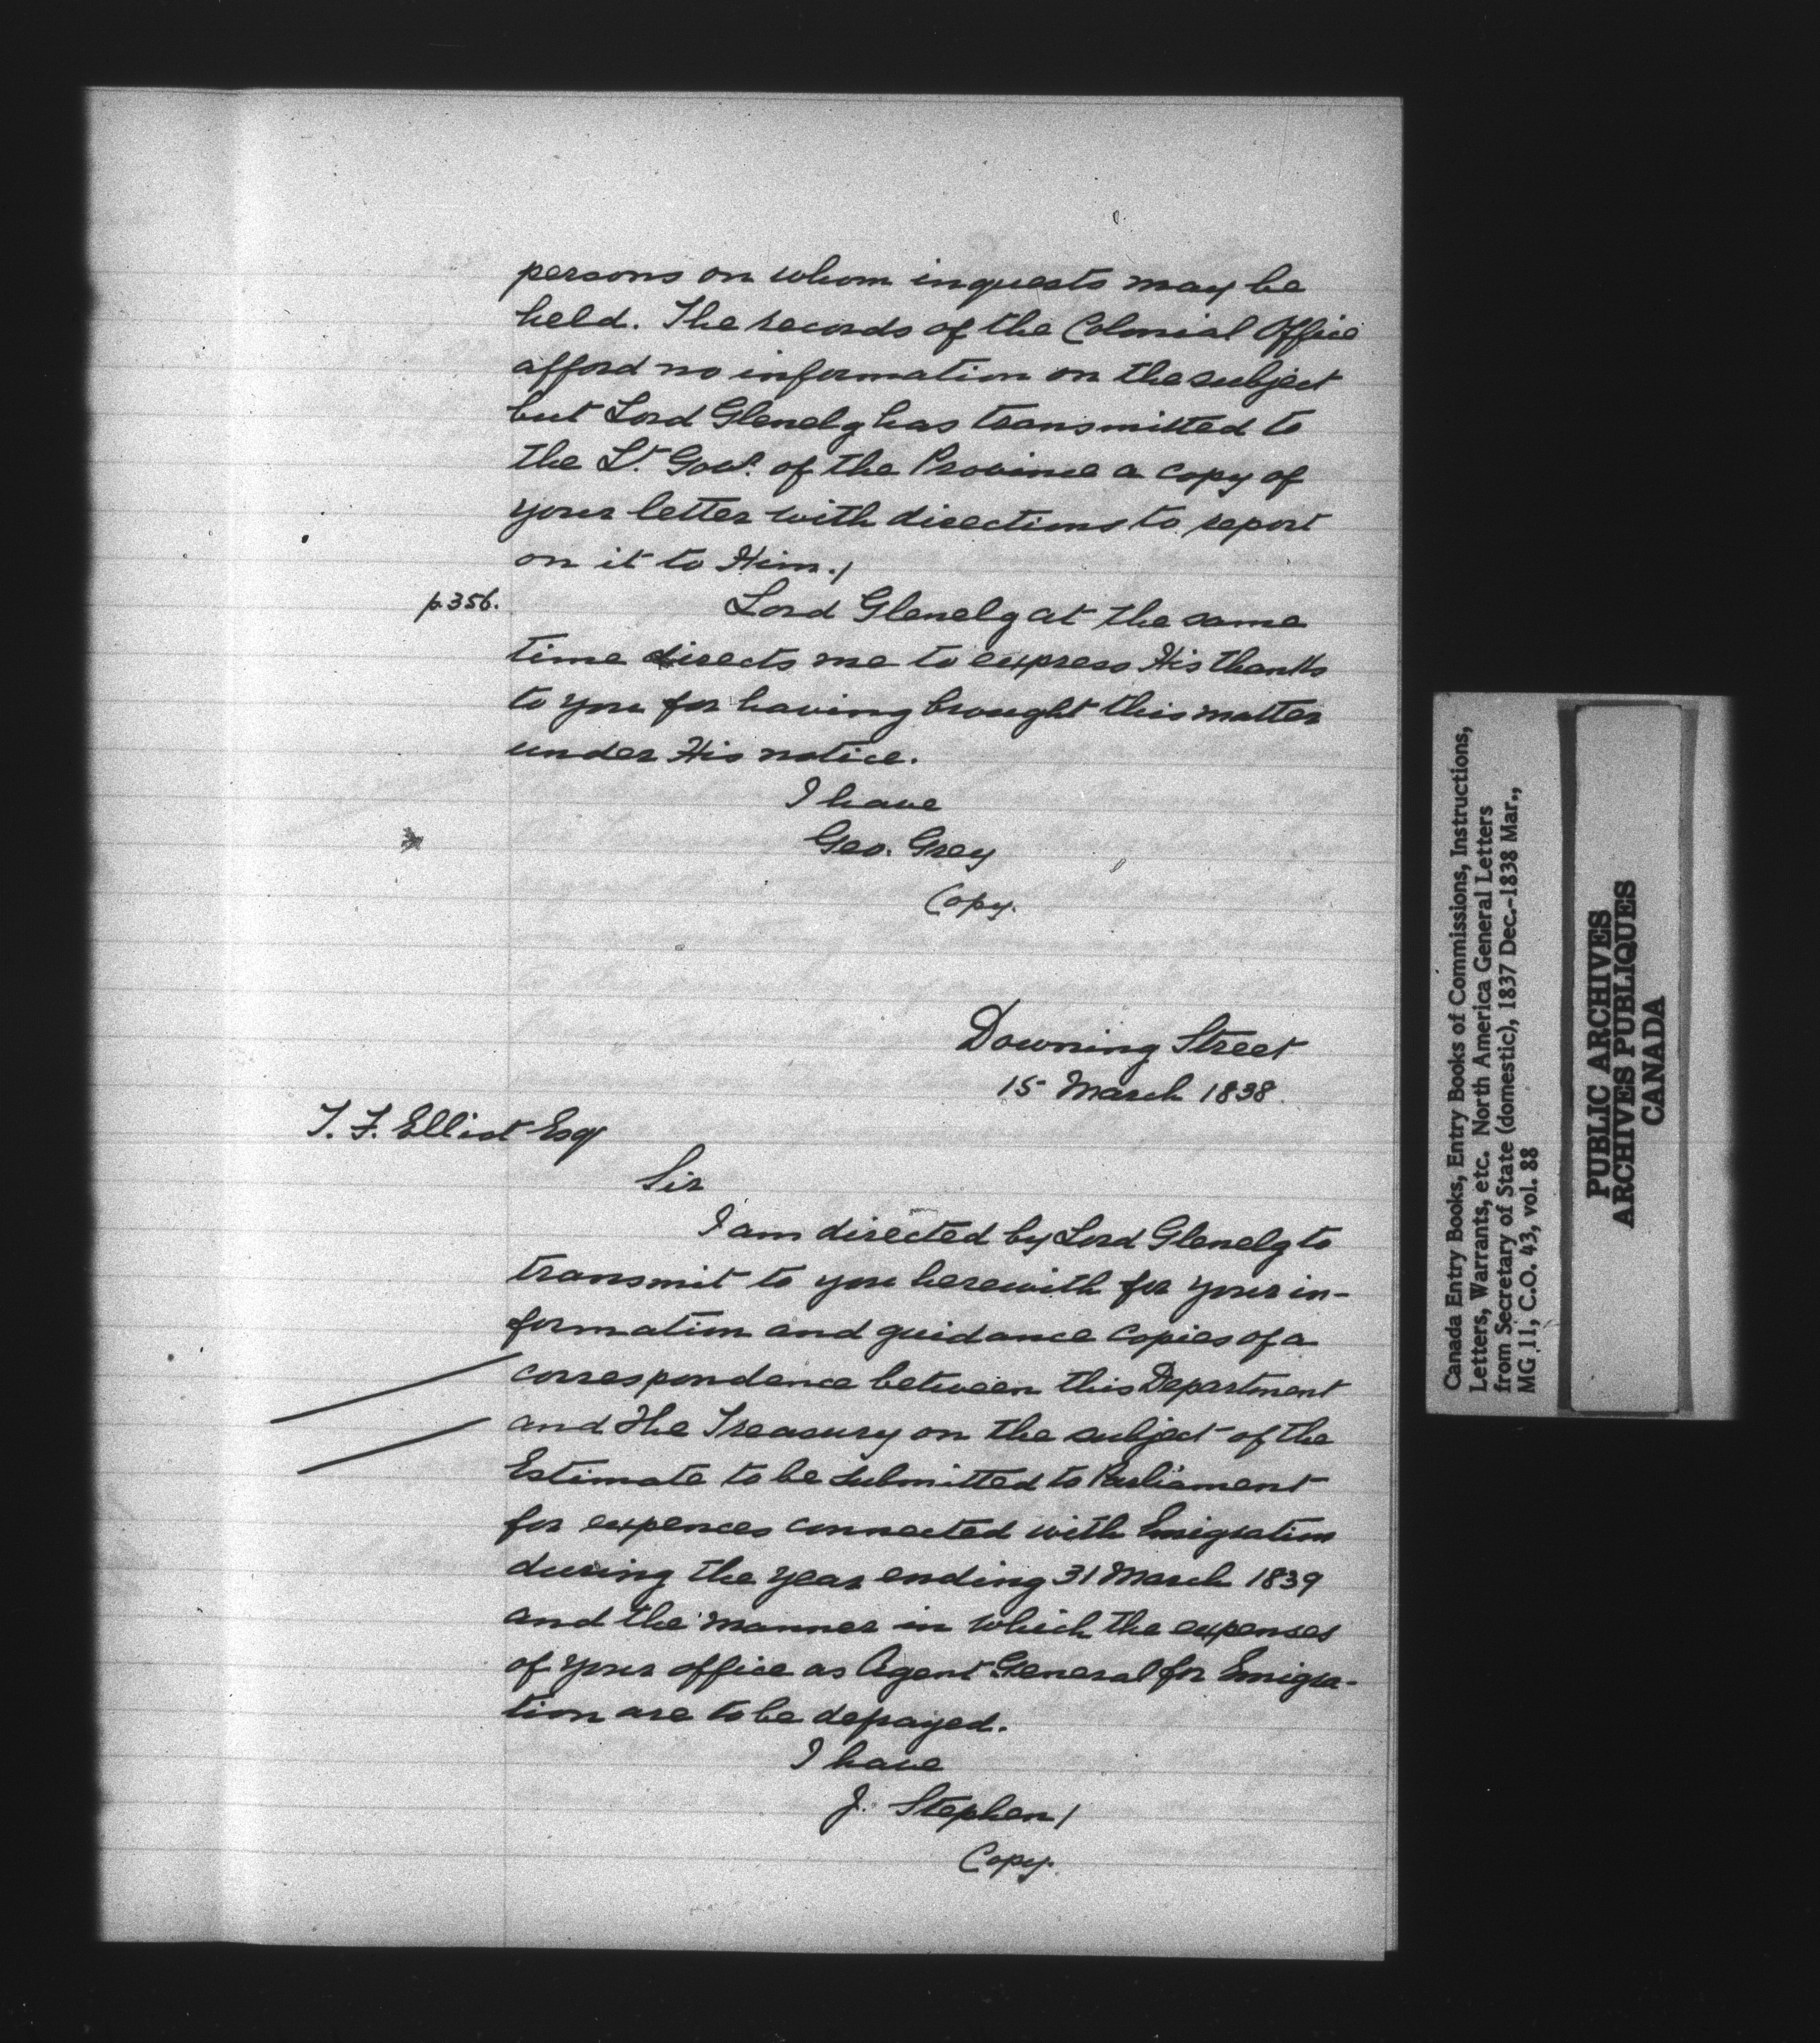 persons on whom inquests may be
held. The records of the Colonial Office
afford no information on the subject
but Lord Glenelg has transmitted to
the Lt. Govr. of the Province a copy of
your letter with directions to report
on it to Him./
p.356.
Lord Glenelg at the same
time directs me to express His thanks
to you for having brought this matter
under His notice.
I have
Geo. Grey
Copy.
Downing Street
15 March 1838.
T. F. Elliot Esqr
Sir
I am directed by Lord Glenelg to
transmit to you herewith for your in-
formation and guidance copies of a
correspondence between this Department
and the Treasury on the subject of the
Estimate to be submitted to Parliament
for expences connected with Emigration
during the year ending 31 March 1839
and the manner in which the expenses
of your office as Agent General for Emigra-
tion are to be defrayed.
I have
J. Stephen/
Copy.
Canada Entry Books, Entry Books of Commissions, Instructions,
Letters, Warrants, etc. North America General Letters
from Secretary of State (domestic), 1837 Dec.-1838 Mar.,
MG 11, C.O. 43, vol. 88
PUBLIC ARCHIVES
ARCHIVES PUBLIQUES
CANADA